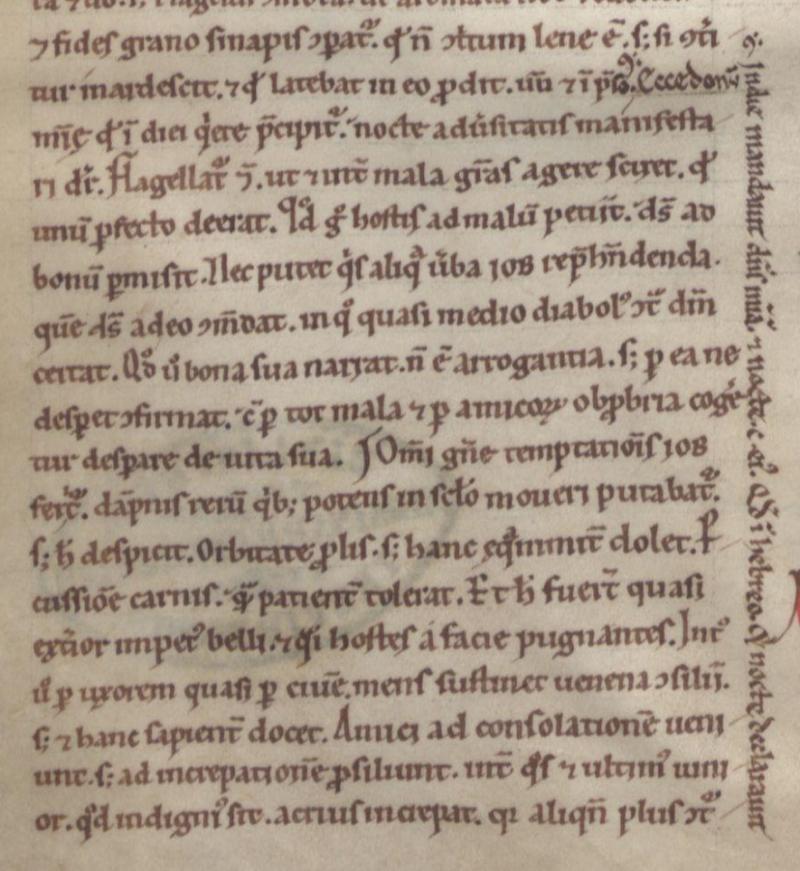 ⁊ fides grano sinapis ꝯpat᷑. qd̓ n̄ ꝯtritum lene ē. s; si ꝯti
tur inardescit. ⁊ qd̓ latebat in eo ꝓdit. un̄ ⁊ ī ps̄o.
q ī diei q̇ete p̄cipit᷑. nocte adūsitatis manifesta
ri dr̄. Flagellat᷑ ⁊. ut ⁊ int̄ mala grās agere sciret. qd̓
unū ꝑfecto deerat. Id g̊ hostis ad malū petiit. ds̄ ad
bonū ꝑmisit. Nec putet q̇s aliq̓ ūba ioB rep̄hn̄denda.
quē ds̄ adeo ꝯm̄dat. in q̊ quasi medio diabolꝰ ꝯt̄ dm̄
certat. Qd̓ ů bona sua narrat. n̄ ē arrogantia. s; ꝑ ea ne
despet ꝯfirmat. cū ꝑ tot mala ⁊ ꝑ amicoꝝ obꝓbria coge
tur despare de uita sua. Om̄i gn̄e temptatiōis ioB
ferit᷑. dāpnis rerū qib; potens in sclo moueri putabat᷑.
s; h̄ despicit. Orbitate ꝓlis. s; hanc eq̓nimit̄ dolet. P
cussiōe carnis. q̄ patient̄ tolerat. Et h̄ fuer̄t quasi
ext̄ior impetꝰ belli. ⁊ q̓i hostes a facie pugnantes. Intꝰ
ů ꝑ uxorem quasi ꝑ ciuē. mens sustinet uenena ꝯsilii.
s; ⁊ hanc sapient̄ docet. Amici ad consolationē ueni
unt. s; ad increpationē ꝓsiliunt. int̄ q̓s ⁊ ultimꝰ iuni
or. qd̓ indignꝰ sit. acrius increpat. qi aliqn̄ plus ꝯt᷑
In die mandauit dn̄s mīā. ⁊ nocte. c. eiꝰ. Qd̓ ī hebreo. q̊ nocte declarauit